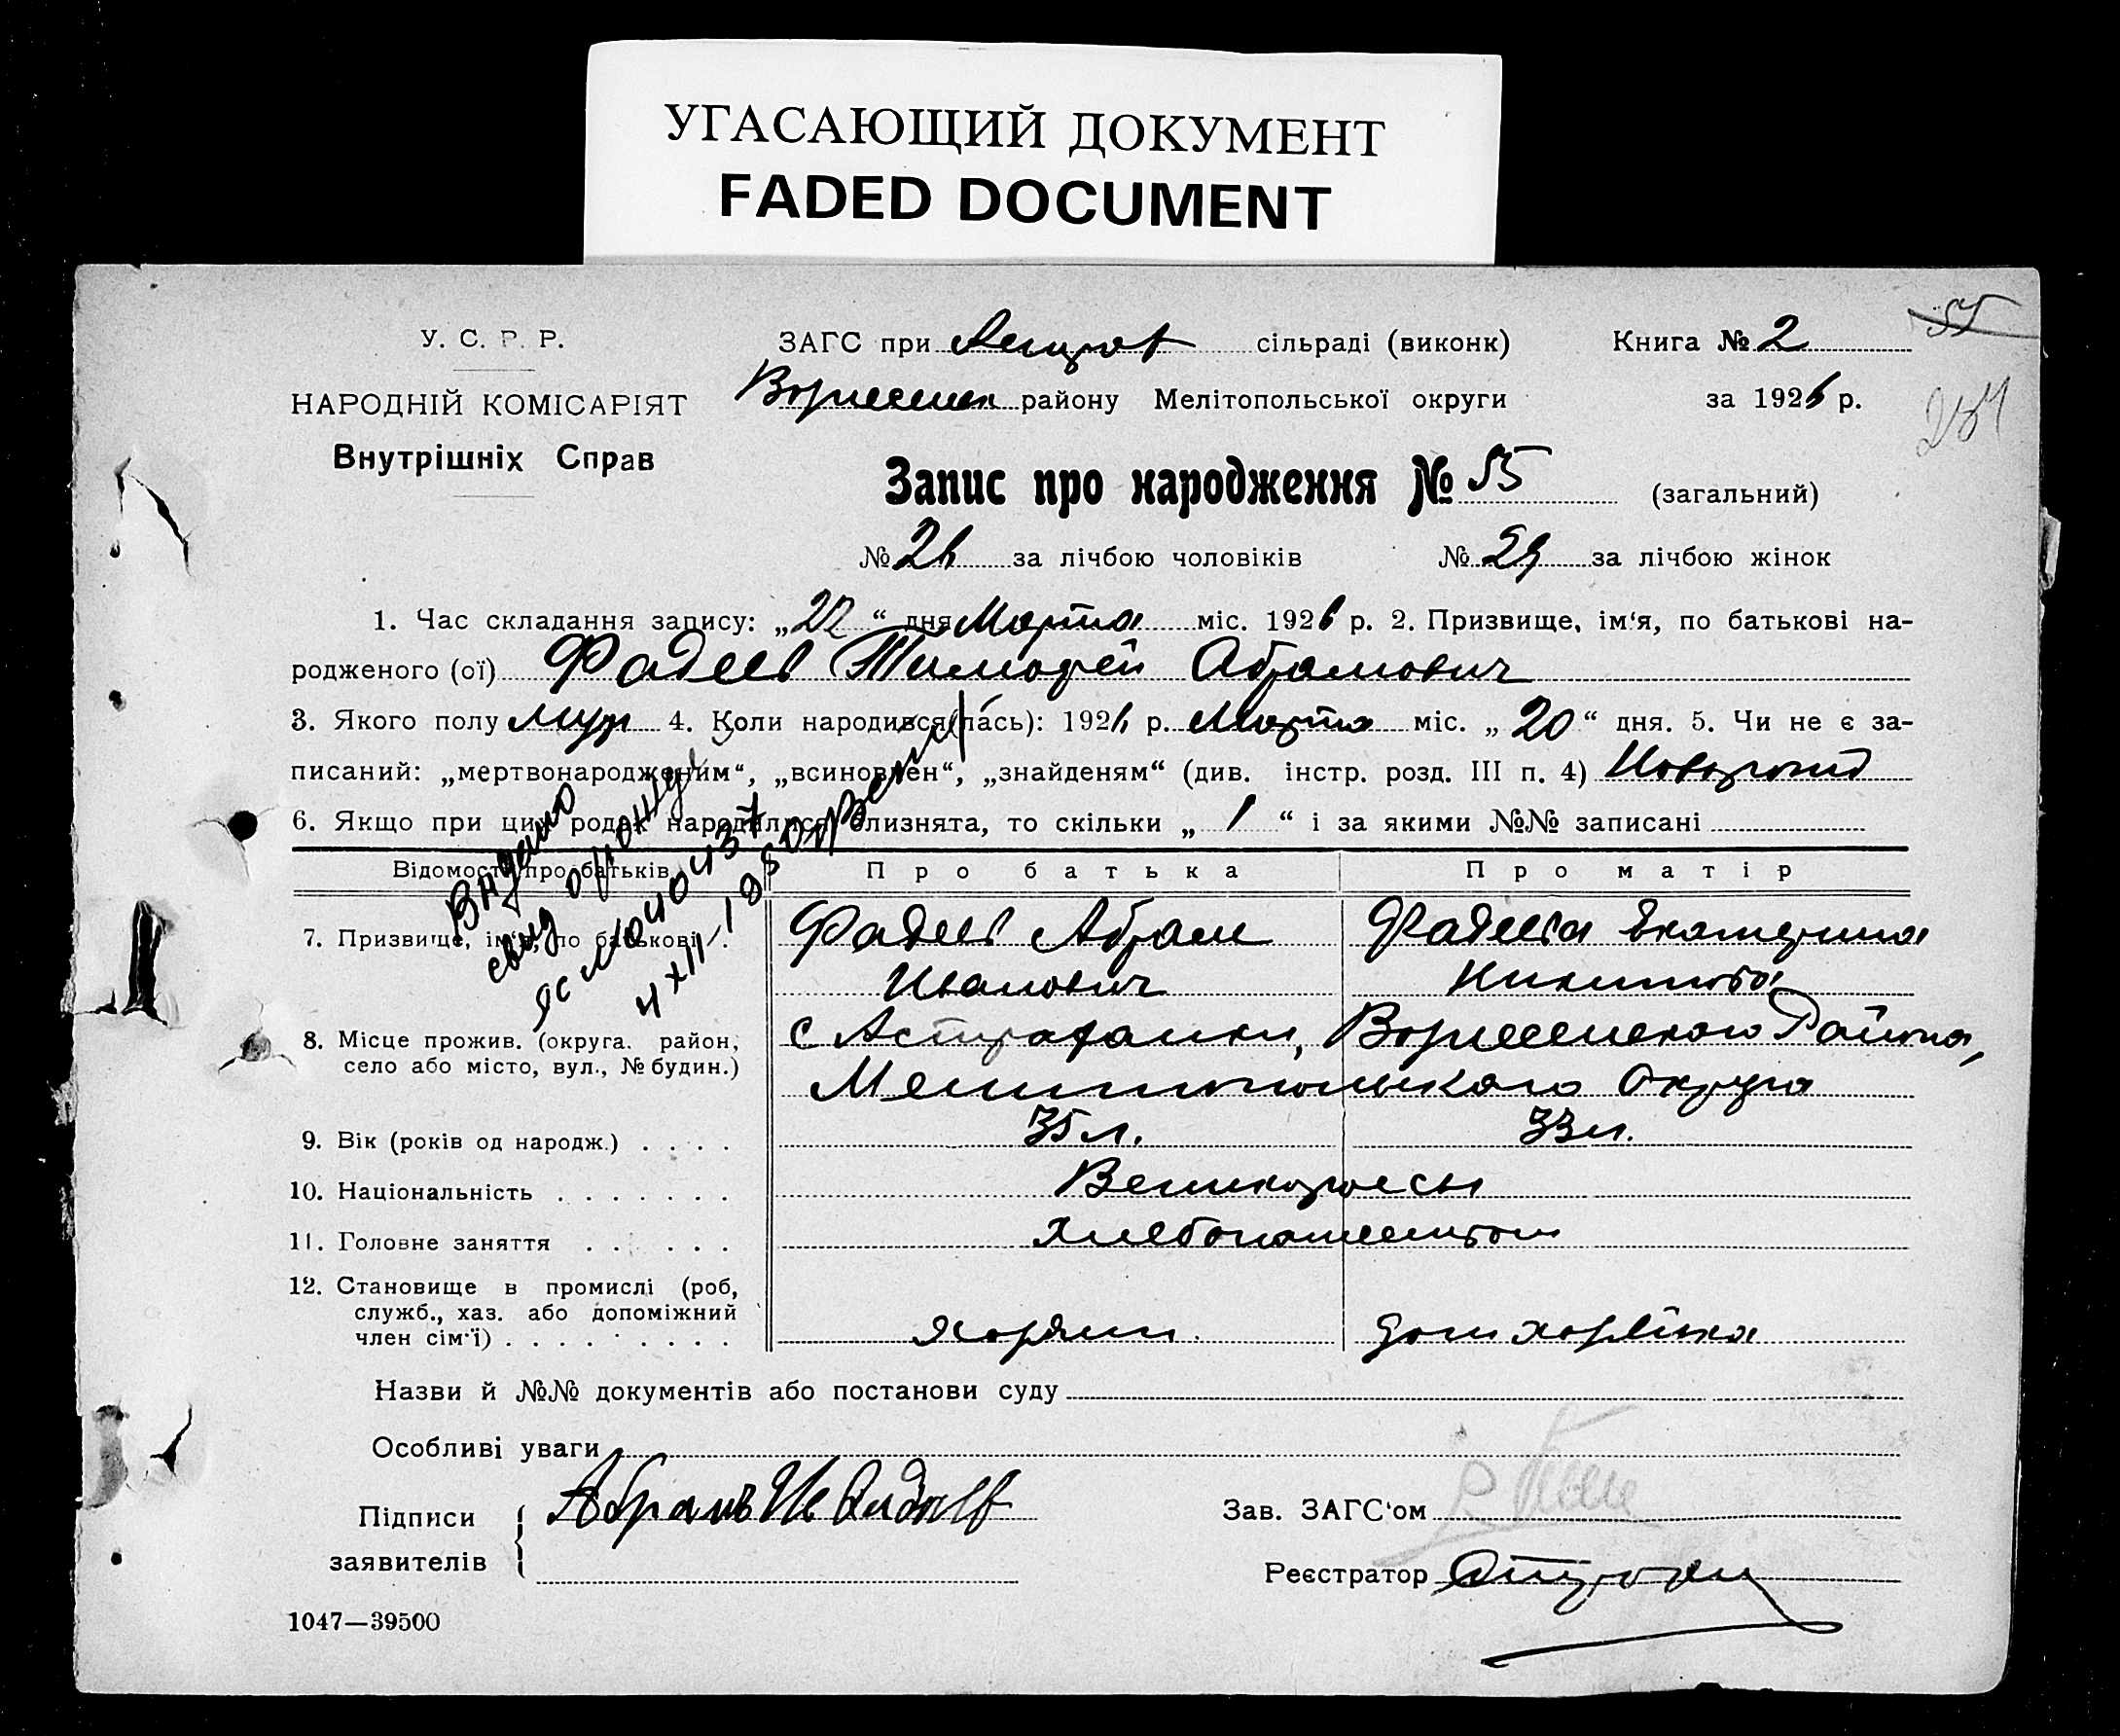 УГАСАЮЩИЙ ДОКУМЕНТ
FADED DOCUMENT
У. С. Р. Р.
НАРОДНІЙ КОМІСАРІЯТ
Внутрішніх Справ
ЗАГС при сільраді (виконк)
району Мелітопольської округи
Книга № 2
за 1926 р.
55
Запис про народження № 55 (загальний)
№ 26 за лічбою чоловіків № 29 за лічбою жінок
1. Час складання запису: „22“ дня Марта міс. 1926 р. 2. Призвище, ім‘я, по батькові на-
родженого (ої) Фадеев Тимофей Абрамович
3. Якого полу муж 4. Коли народився(лась): 1926 р. Марта міс. „20“ дня. 5. Чи не є за-
писаний: „мертвонародженим“, „всиновлен“, „знайденям“ (див. інстр. розд. III п. 4)
6. Якщо при цих родах народилися близнята, то скільки „1“ і за якими №№ записані
Відомості про батьків Про батька Про матір
7. Призвище, ім‘я, по батькові . Фадеев Абрам Фадеева Екатерина
Иванович Никитова
8. Місце прожив. (округа. район, с Астраханки, Района,
село або місто, вул., № будин.) Мелитопольского Округа
9. Вік (років од народж.) . . . . 35 л. 33 л.
10. Національність . . . . . . . Великороссы
11. Головне заняття . . . . . . Хлебопашеством
12. Становище в промислі (роб,
служб., хаз. або допоміжний
член сім‘ї) . . . . . . . . . Хозяин дом хозяйка
Видано
4 XII
Назви й №№ документів або постанови суду
Особливі уваги
Підписи
заявителів
Абрам
Зав. ЗАГС‘ом
Реєстратор
1047—39500